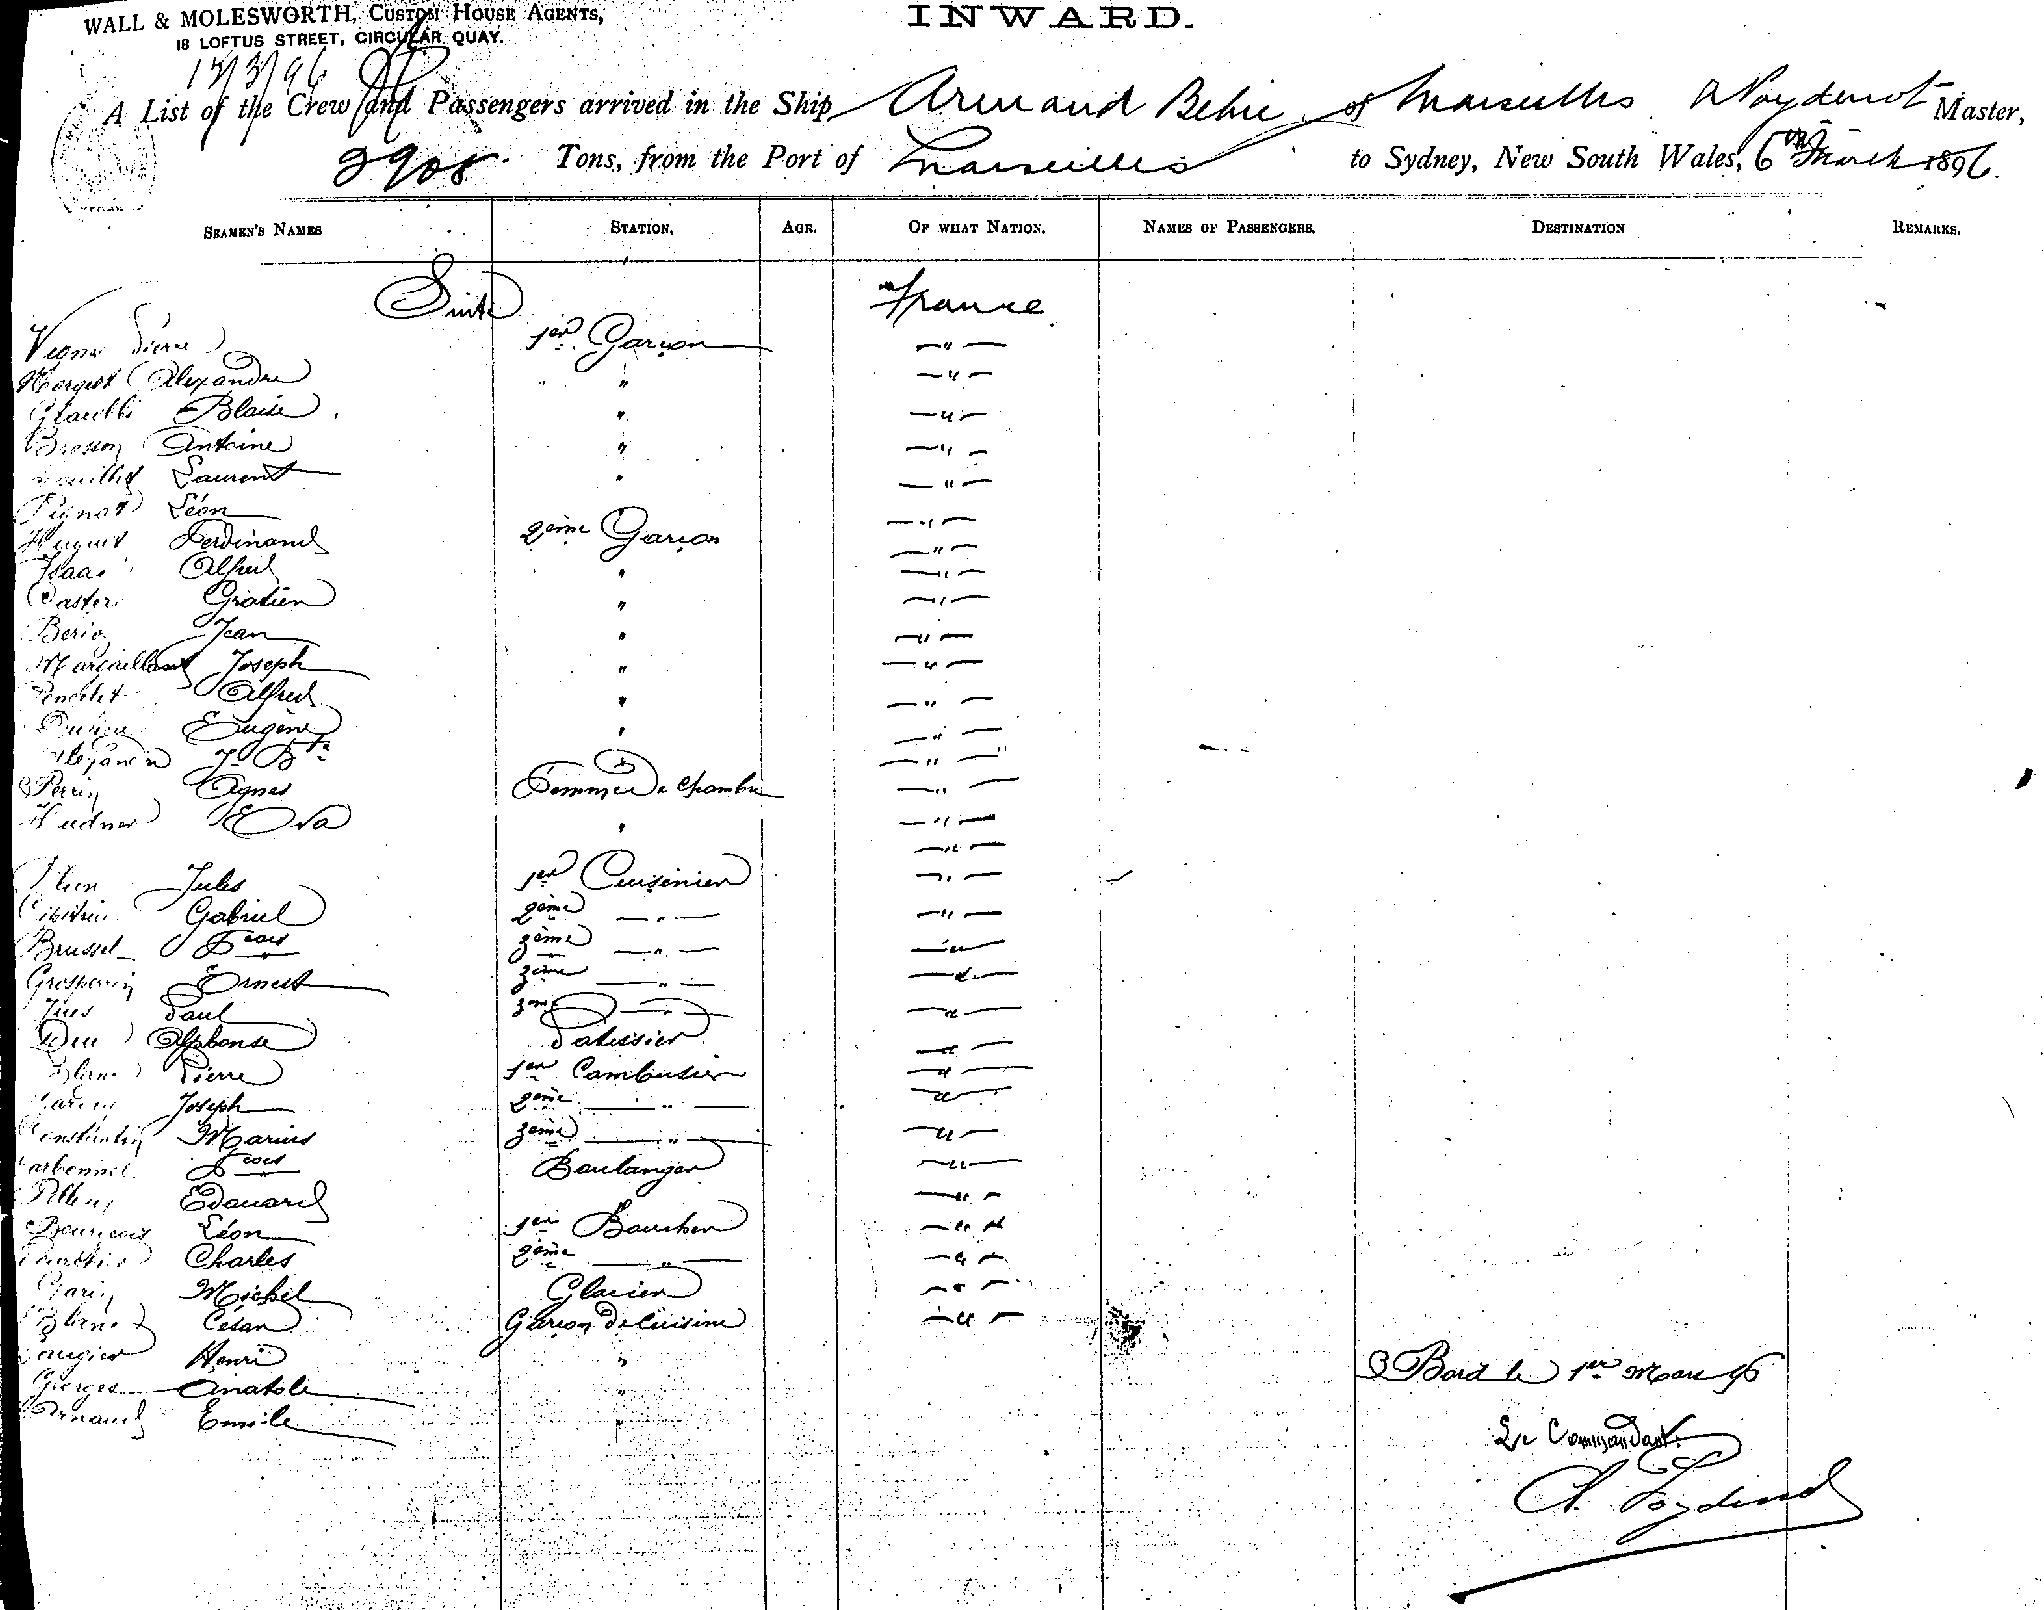 WALL & MOLESWORTH, CUSTOM HOUSE AGENTS,
18 LOFTUS STREET, CIRCULAR QUAY.
INWARD.
13/3/96
A List of the Crew and Passengers arrived in the Ship Armand Behic of Marseilles A Poydenot Master,
3908 Tons, from the Port of Marseilles to Sydney, New South Wales, 6th March 1896.
SEAMEN'S NAMES STATION. AGE. OF WHAT NATION. NAMES OF PASSENGERS. DESTINATION REMARKS.
Suite France
Vigne Pierre 1er Garçon — " —
Alexandre " — " —
Blaise " — " —
Brosson Antoine " — " —
Laurent " — " —
Pignot Léon — " —
Huguet Ferdinand 2ème Garçon — " —
Isaac Alfred " — " —
Caster Gratien " — " —
Jean " — " —
Margaillant Joseph " — " —
Alfred " — " —
Eugène " — " —
J. Bte " — " —
Perrin Agnes Femme de Chambre — " —
Eva " — " —
Jules 1er Cuisinier — " —
Gabriel 2ème — " — — " —
Brussel Fcois 3ème — " — — " —
Grosperrin Ernest 3ème — " — — " —
Paul 3ème — " — — " —
Alphonse Patissier — " —
Pierre 1er Cambusier — " —
Joseph 2ème — " — — " —
Constantin Marius 3ème — " — — " —
Carbonnel Fcois Boulanger — " —
Edouard — " —
Léon 1er Boucher — " —
Charles 2ème — " — — " —
Garin Michel Glacier — " —
Blanc César Garçon de Cuisine — " —
Laugier Henri "
Georges Anatole "
Arnaud Emile
A Bord le 1er Mars 96
Le Commandant
A. Poydenot